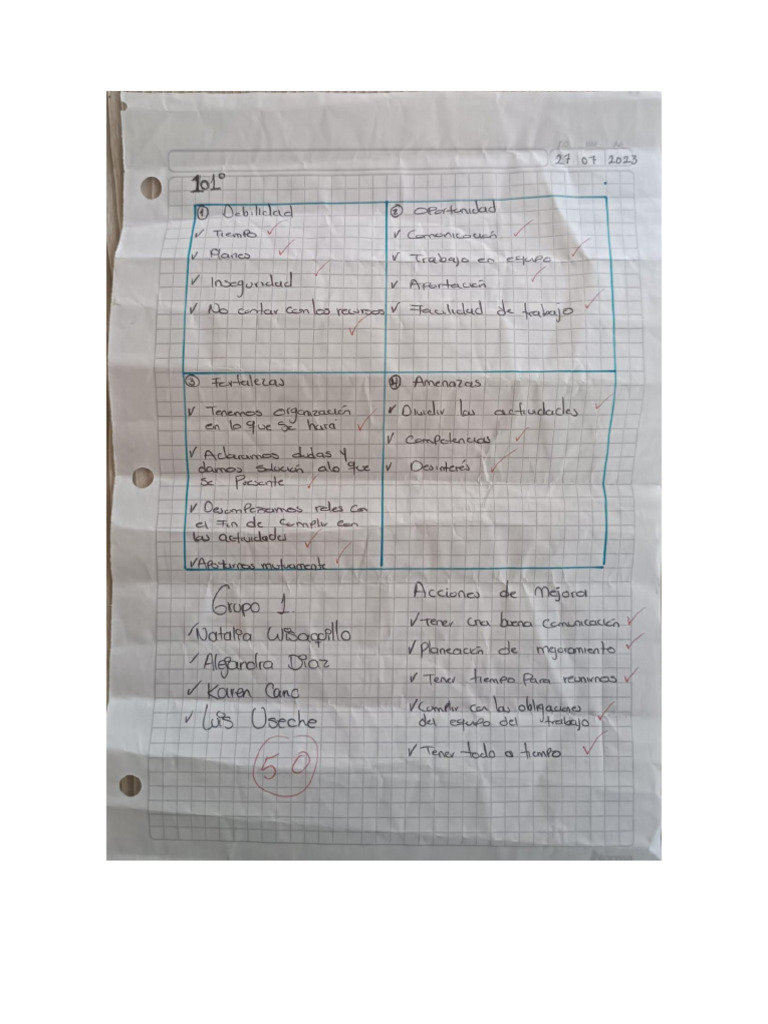 27 07 2023
101°
① Debilidad
✓ Tiempo
✓ Planes
✓ Inseguridad
✓ No contar con los recursos
② Oportunidad
✓ Comunicación
✓ Trabajo en equipo
✓ Aportación
✓ Facilidad de trabajo
③ Fortalezas
✓ Tenemos organización
en lo que se hará
✓ Aclaramos dudas y
damos solución a lo que
se Presente
✓ Desempeñamos roles con
el Fin de cumplir con
las actividades
✓ Apoyarnos mutuamente
④ Amenazas
✓ Dividir las actividades
✓ Competencias
✓ Desinterés
Grupo 1.
✓ Natalia
✓ Alejandra Diaz
✓ Karen Cano
✓ Luis Useche
50
Acciones de Mejora
✓ Tener una buena comunicación
✓ Planeación de mejoramiento
✓ Tener tiempo para reunirnos
✓ Cumplir con las obligaciones
del equipo del trabajo
✓ Tener todo a tiempo